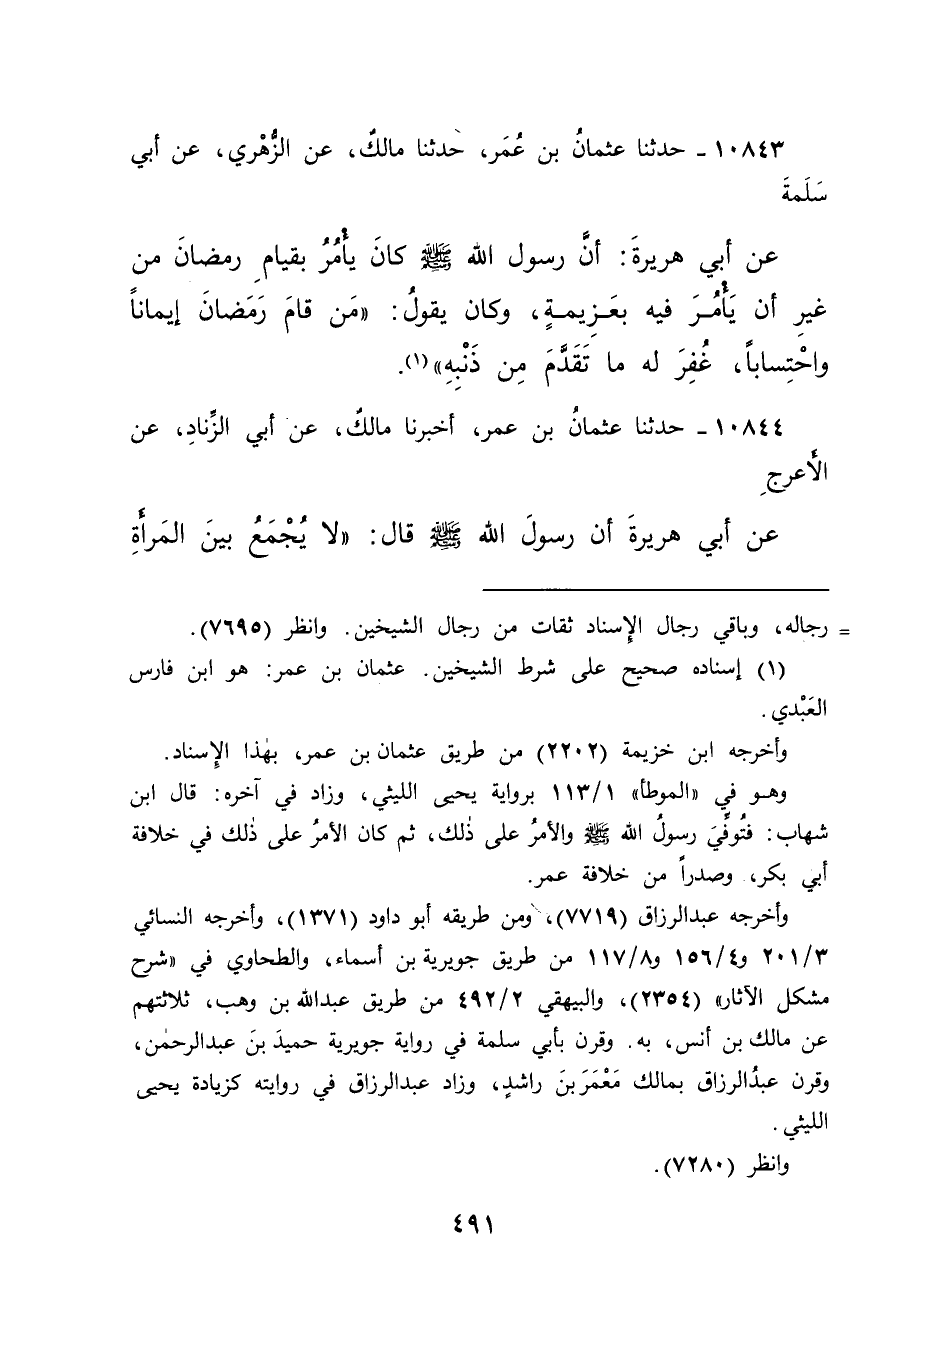 ١٠٨٤٣ - حدثنا عثمانُ بن عُمَر، حدثنا مالكٌ، عن الزُّهْري، عن أبي
سَلَمةَ
عن أبي هريرةَ: أنَّ رسول الله ﷺ كانَ يأْمُرُ بقيامِ رمضانَ من
غيرِ أن يَأْمُـرَ فيه بعَـزِيمـةٍ، وكان يقولُ: «مَن قامَ رَمَضانَ إيماناً
واحْتِساباً، غُفِرَ له ما تَقَدَّمَ مِن ذَنْبِهِ»(١).
١٠٨٤٤ - حدثنا عثمانُ بن عمر، أخبرنا مالكٌ، عن أبي الزِّنادِ، عن
الأَعرجِ
عن أبي هريرةَ أن رسولَ الله ﷺ قال: «لا يُجْمَعُ بينَ المَرأَةِ
= رجاله، وباقي رجال الإسناد ثقات من رجال الشيخين. وانظر (٧٦٩٥).
(١) إسناده صحيح على شرط الشيخين. عثمان بن عمر: هو ابن فارس
العَبْدي.
وأخرجه ابن خزيمة (٢٢٠٢) من طريق عثمان بن عمر، بهٰذا الإسناد.
وهـو في «الموطأ» ١١٣/١ برواية يحيى الليثي، وزاد في آخره: قال ابن
شهاب: فتُوفِّيَ رسولُ الله ﷺ والأمرُ على ذٰلك، ثم كان الأمرُ على ذٰلك في خلافة
أبي بكر، وصدراً من خلافة عمر.
وأخرجه عبدالرزاق (٧٧١٩)، ومن طريقه أبو داود (١٣٧١)، وأخرجه النسائي
٢٠١/٣ و١٥٦/٤ و١١٧/٨ من طريق جويرية بن أسماء، والطحاوي في «شرح
مشكل الآثار» (٢٣٥٤)، والبيهقي ٤٩٢/٢ من طريق عبدالله بن وهب، ثلاثتهم
عن مالك بن أنس، به. وقرن بأبي سلمة في رواية جويرية حميدَ بنَ عبدالرحمٰن،
وقرن عبدُالرزاق بمالك مَعْمَرَ بنَ راشدٍ، وزاد عبدالرزاق في روايته كزيادة يحيى
الليثي.
وانظر (٧٢٨٠).
٤٩١